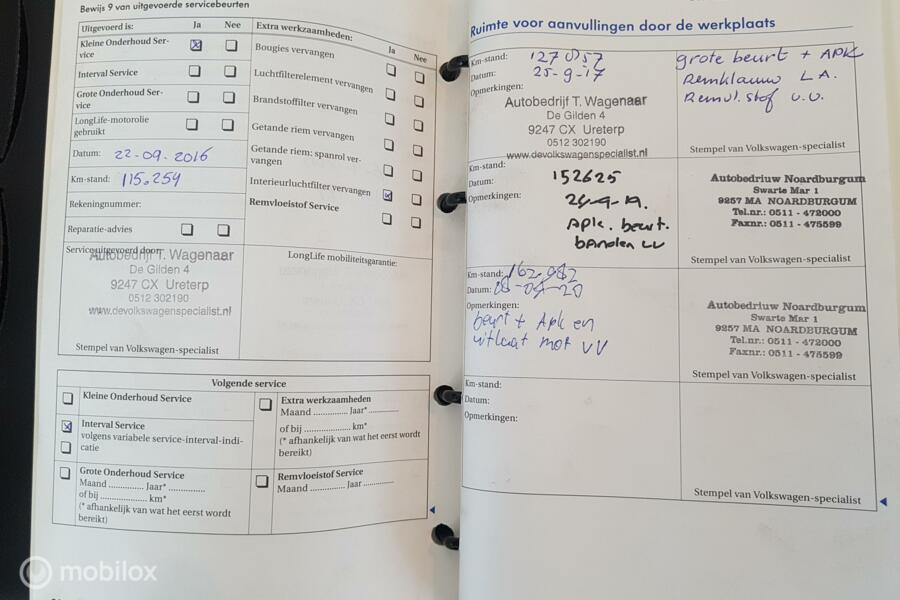 Bewijs 9 van uitgevoerde servicebeurten
Uitgevoerd is: Ja Nee
Kleine Onderhoud Ser-
vice
Interval Service
Grote Onderhoud Ser-
vice
LongLife-motorolie
gebruikt
Datum: 22-09-2016
Km-stand: 115.259
Rekeningnummer:
Reparatie-advies
Service uitgevoerd door:
Autobedrijf T. Wagenaar
De Gilden 4
9247 CX Ureterp
0512 302190
www.devolkswagenspecialist.nl
Stempel van Volkswagen-specialist
Extra werkzaamheden:
Ja Nee
Bougies vervangen
Luchtfilterelement vervangen
Brandstoffilter vervangen
Getande riem vervangen
Getande riem: spanrol ver-
vangen
Interieurluchtfilter vervangen
Remvloeistof Service
LongLife mobiliteitsgarantie:
Volgende service
Kleine Onderhoud Service
Interval Service
volgens variabele service-interval-indi-
catie
Grote Onderhoud Service
Maand ............... Jaar* ...............
of bij ................... km*
(* afhankelijk van wat het eerst wordt
bereikt)
Extra werkzaamheden
Maand .............. Jaar* ..............
of bij .................. km*
(* afhankelijk van wat het eerst wordt
bereikt)
Remvloeistof Service
Maand .............. Jaar ..............
Ruimte voor aanvullingen door de werkplaats
Km-stand: 127 057
Datum: 25-9-17
Opmerkingen:
Autobedrijf T. Wagenaar
De Gilden 4
9247 CX Ureterp
0512 302190
www.devolkswagenspecialist.nl
grote beurt + APK
Remklauw L.A.
Remvl.stof v.v.
Stempel van Volkswagen-specialist
Km-stand: 152625
Datum:
Opmerkingen:
Apk. beurt.
banden vv
Autobedriuw Noardburgum
Swarte Mar 1
9257 MA NOARDBURGUM
Tel.nr.: 0511 - 472000
Faxnr.: 0511 - 475599
Stempel van Volkswagen-specialist
Km-stand: 162.982
Datum:
Opmerkingen:
beurt + Apk en
uitlaat mof vv
Autobedriuw Noardburgum
Swarte Mar 1
9257 MA NOARDBURGUM
Tel.nr.: 0511 - 472000
Faxnr.: 0511 - 475599
Stempel van Volkswagen-specialist
Km-stand:
Datum:
Opmerkingen:
Stempel van Volkswagen-specialist
mobilox